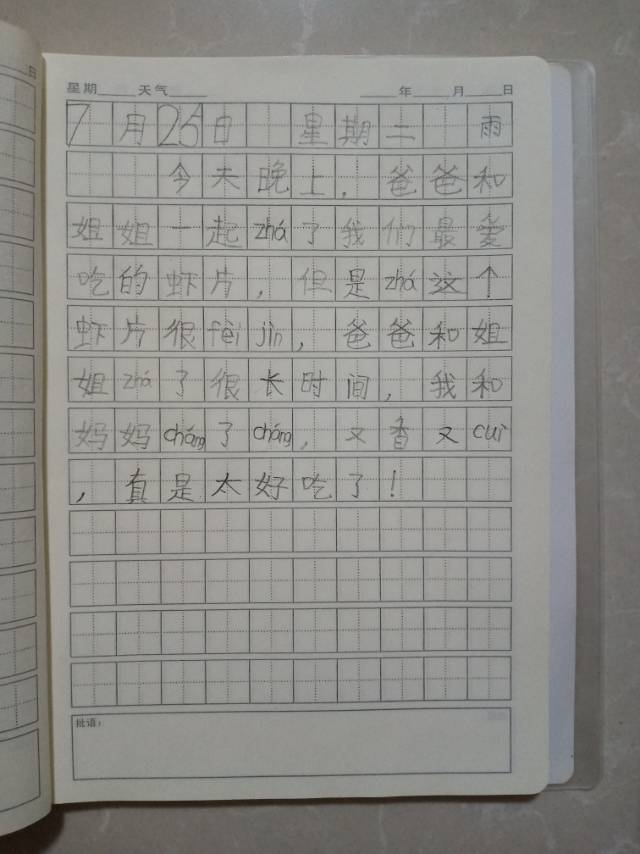 星期 天气 年 月 日
7月25日 星期二 雨
今天晚上，爸爸和
姐姐一起zhá了我们最爱
吃的虾片，但是zhá这个
虾片很fèi jìn，爸爸和姐
姐zhá了很长时间，我和
妈妈cháng了cháng，又香又cuì
，真是太好吃了！
批语：